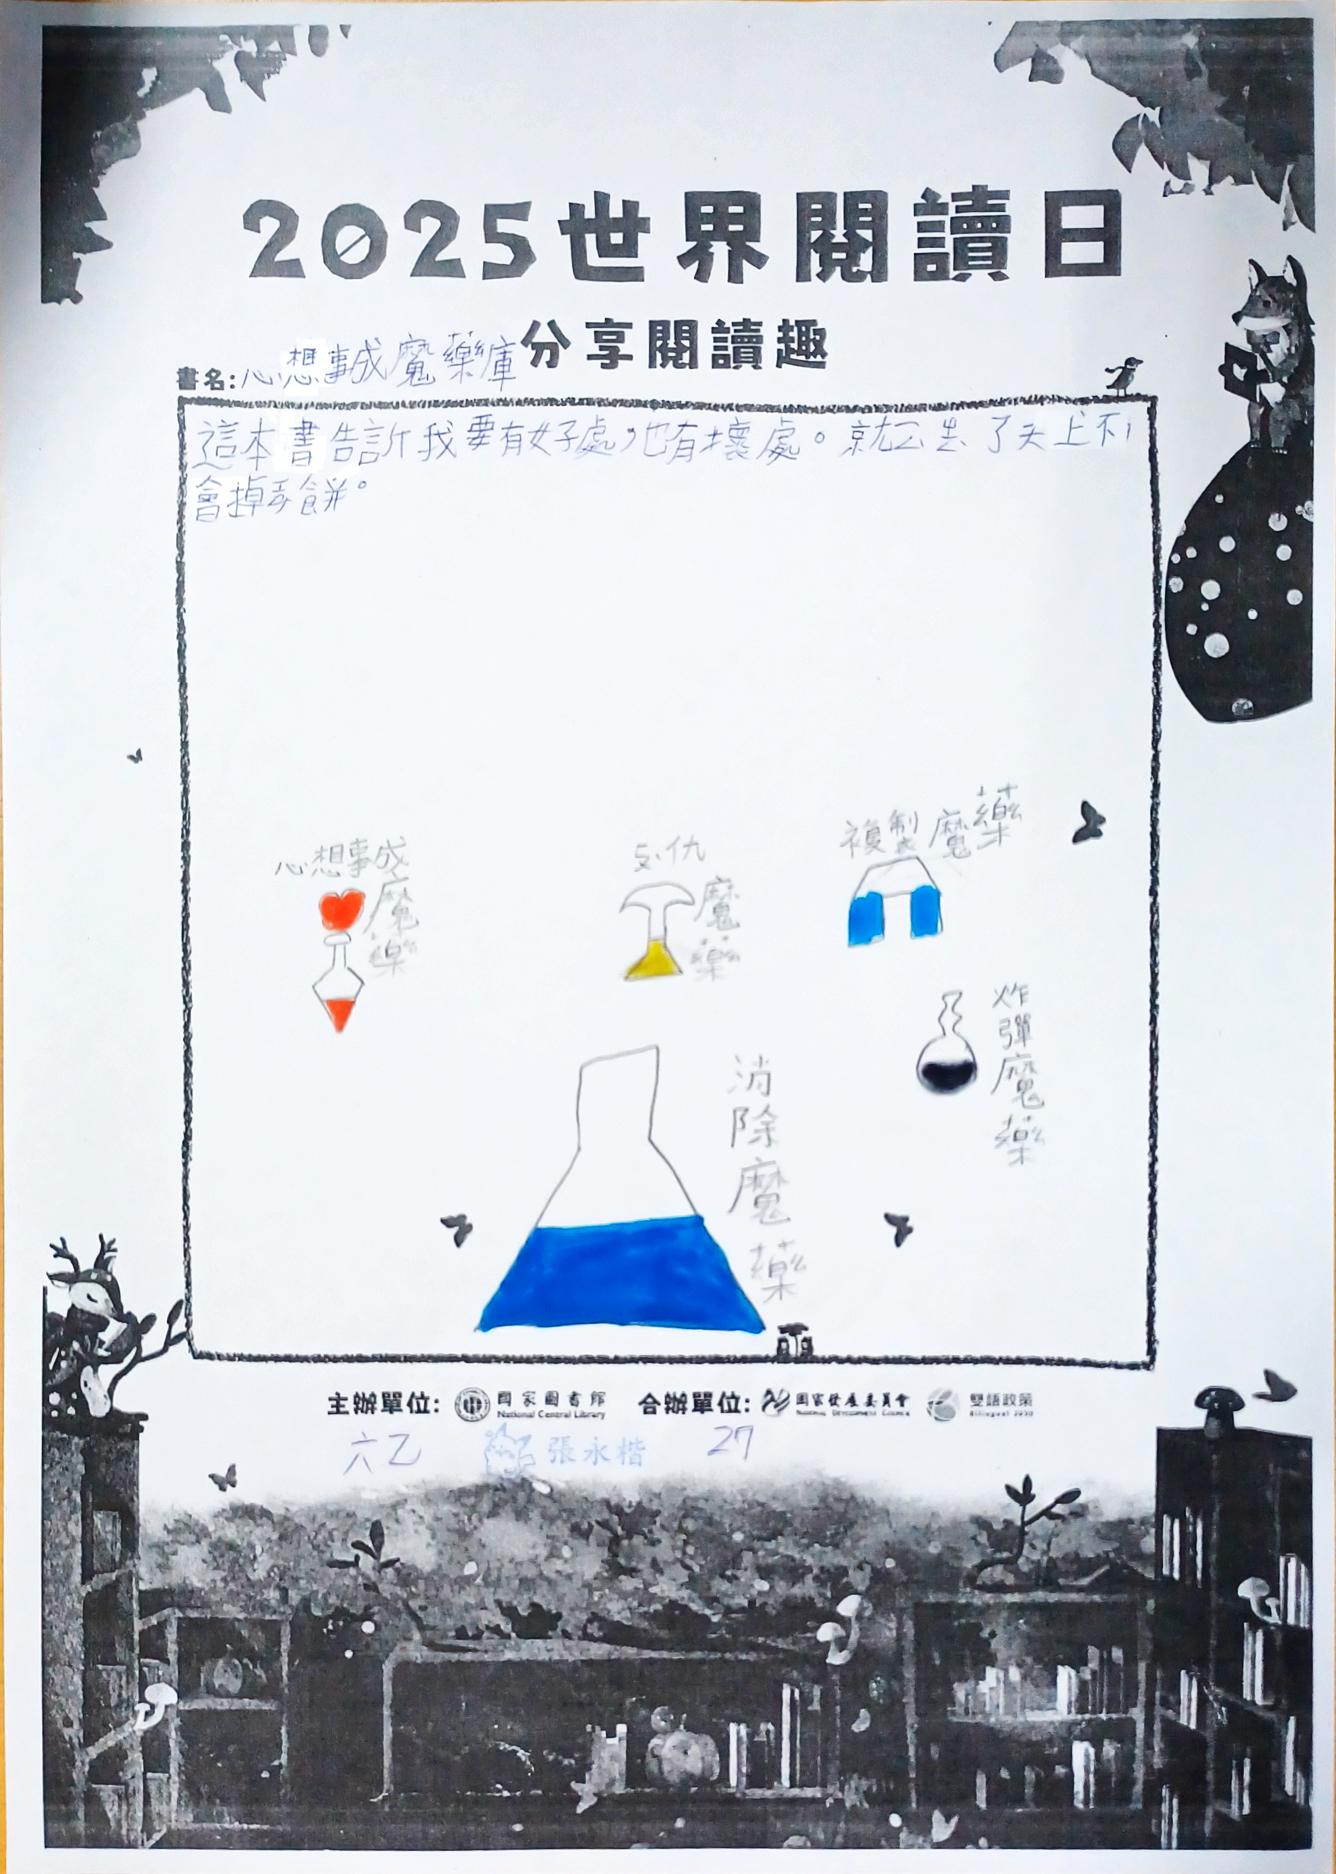 2025世界閱讀日
分享閱讀趣
書名:心想事成魔藥庫
這本書告訴我要有好處,也有壞處。就
了天上不
會掉 餅。
心想事成
魔藥
魔藥
複製魔藥
炸彈魔藥
消除魔藥
主辦單位: 國家圖書館 合辦單位: 國家發展委員會 雙語政策
National Central Library NATIONAL DEVELOPMENT COUNCIL Bilingual 2030
六乙 張永楷 27